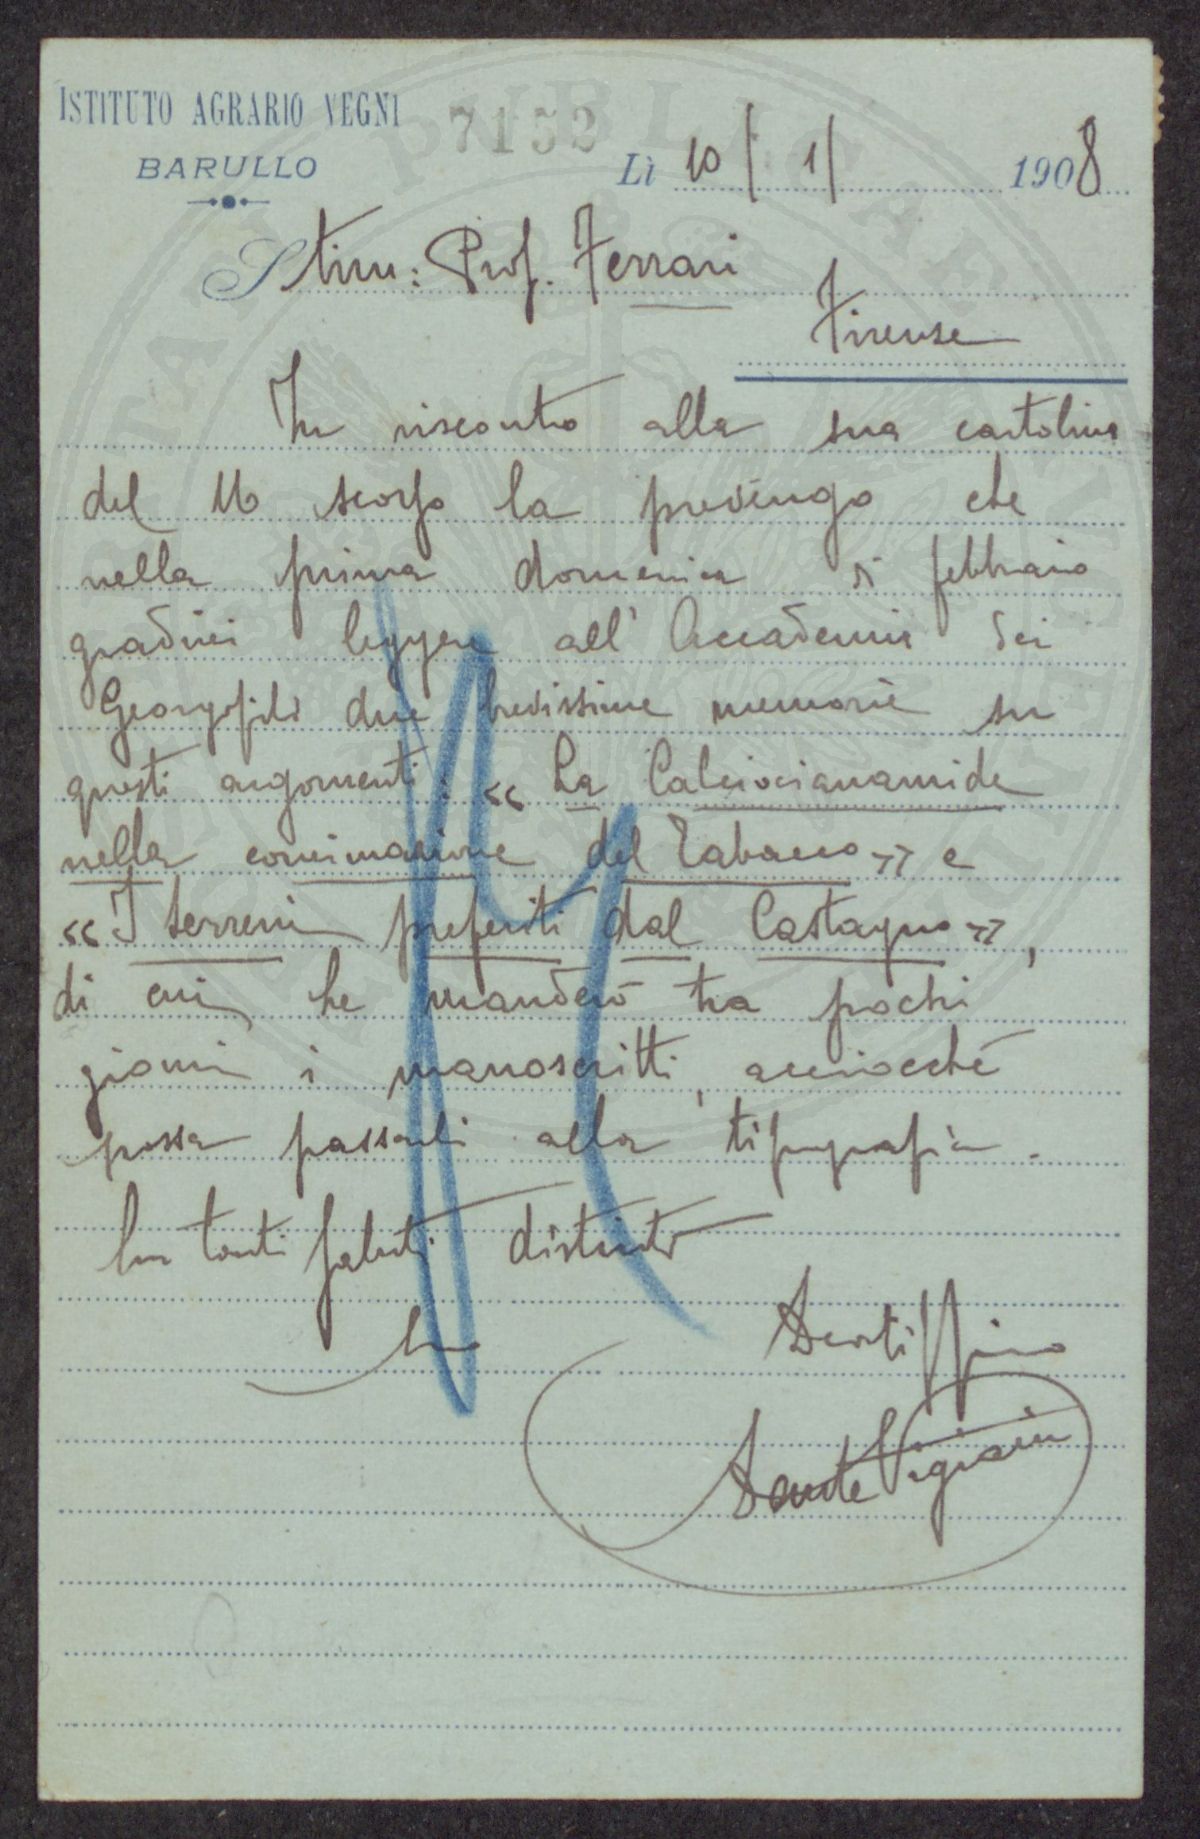 ISTITUTO AGRARIO VEGNI
BARULLO
7152
Lì 10/1/ 1908
Stim: Prof. Ferrari
Firenze
In riscontro alla sua cartolina
del 16 scorso la prevengo che
nella prima domenica di febbraio
gradirei leggere all'Accademia dei
Georgofili due brevissime memorie su
questi argomenti: « La Calciocianamide
nella concimazione del Tabacco » e
« I terreni preferiti dal Castagno »,
di cui le manderò tra pochi
giorni i manoscritti, acciocché
possa passarli alla tipografia.
Con tanti saluti distinti
Suo
Devotissimo
Sante